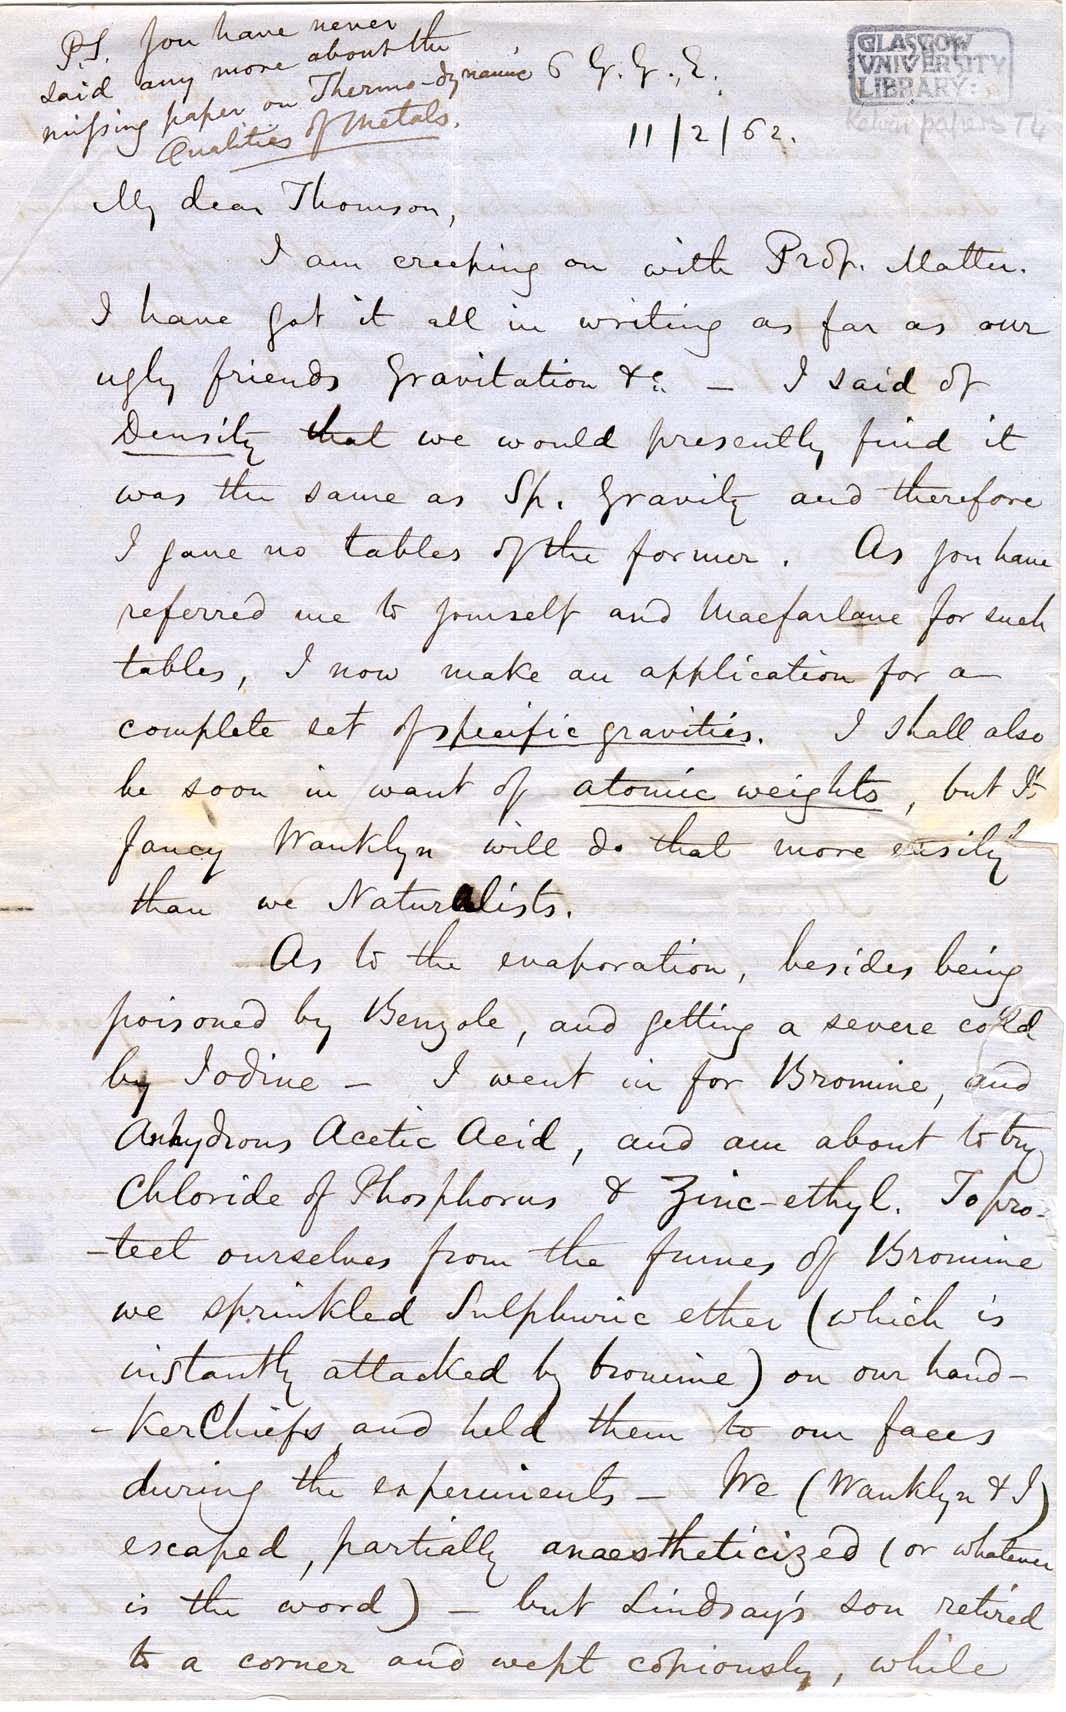 P.S. You have never
said any more about the
missing paper on Thermo-dynamic
Qualities of Metals.
6 G. G. E.
11/2/62.
GLASGOW
UNIVERSITY
LIBRARY:
Kelvin papers T4
My dear Thomson,
I am creeping on with Prop. Matter.
I have got it all in writing as far as our
ugly friends Gravitation &c. — I said of
Density that we would presently find it
was the same as Sp. Gravity and therefore
I gave no tables of the former. As you have
referred me to yourself and Macfarlane for such
tables, I now make an application for a
complete set of specific gravities. I shall also
be soon in want of atomic weights, but I
fancy Wanklyn will do that more easily
than we Naturalists.
As to the evaporation, besides being
poisoned by Benzole, and getting a severe cold
by Iodine — I went in for Bromine, and
Anhydrous Acetic Acid, and am about to try
Chloride of Phosphorus & Zinc-ethyl. To pro-
-tect ourselves from the fumes of Bromine
we sprinkled Sulphuric ether (which is
instantly attacked by bromine) on our hand-
-kerchiefs and held them to our faces
during the experiments — We (Wanklyn & I)
escaped, partially anaestheticized (or whatever
is the word) — but Lindsay's son retired
to a corner and wept copiously, while